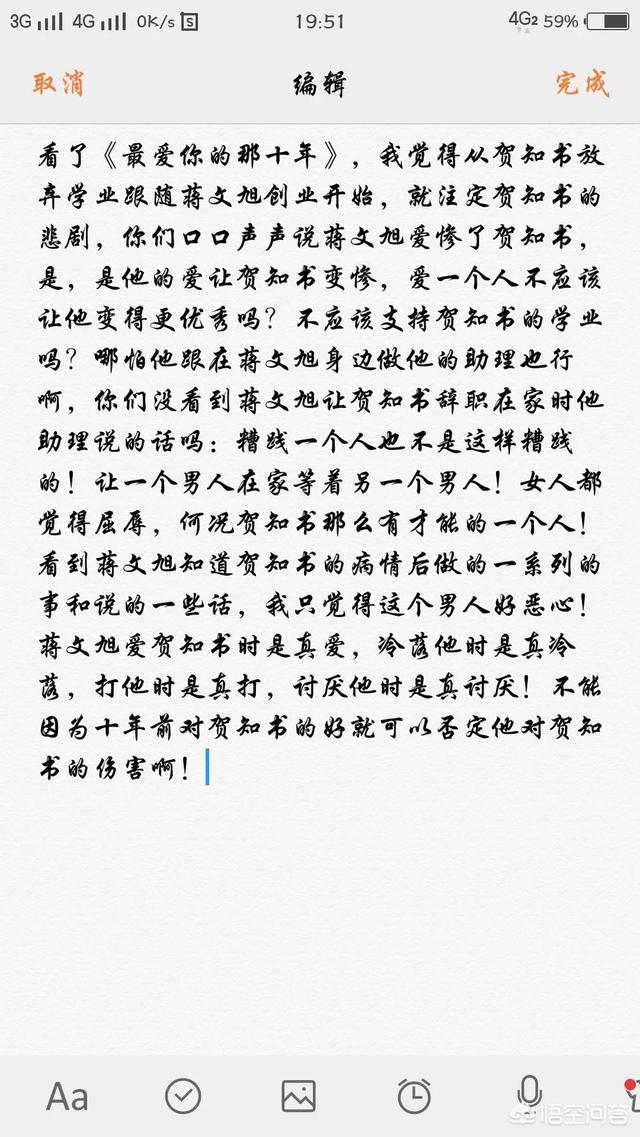 3G 4G 0K/s S 19:51 4G2 59%
取消 编辑 完成
看了《最爱你的那十年》，我觉得从贺知书放
弃学业跟随蒋文旭创业开始，就注定贺知书的
悲剧，你们口口声声说蒋文旭爱惨了贺知书，
是，是他的爱让贺知书变惨，爱一个人不应该
让他变得更优秀吗？不应该支持贺知书的学业
吗？哪怕他跟在蒋文旭身边做他的助理也行
啊，你们没看到蒋文旭让贺知书辞职在家时他
助理说的话吗：糟践一个人也不是这样糟践
的！让一个男人在家等着另一个男人！女人都
觉得屈辱，何况贺知书那么有才能的一个人！
看到蒋文旭知道贺知书的病情后做的一系列的
事和说的一些话，我只觉得这个男人好恶心！
蒋文旭爱贺知书时是真爱，冷落他时是真冷
落，打他时是真打，讨厌他时是真讨厌！不能
因为十年前对贺知书的好就可以否定他对贺知
书的伤害啊！
Aa
悟空问答